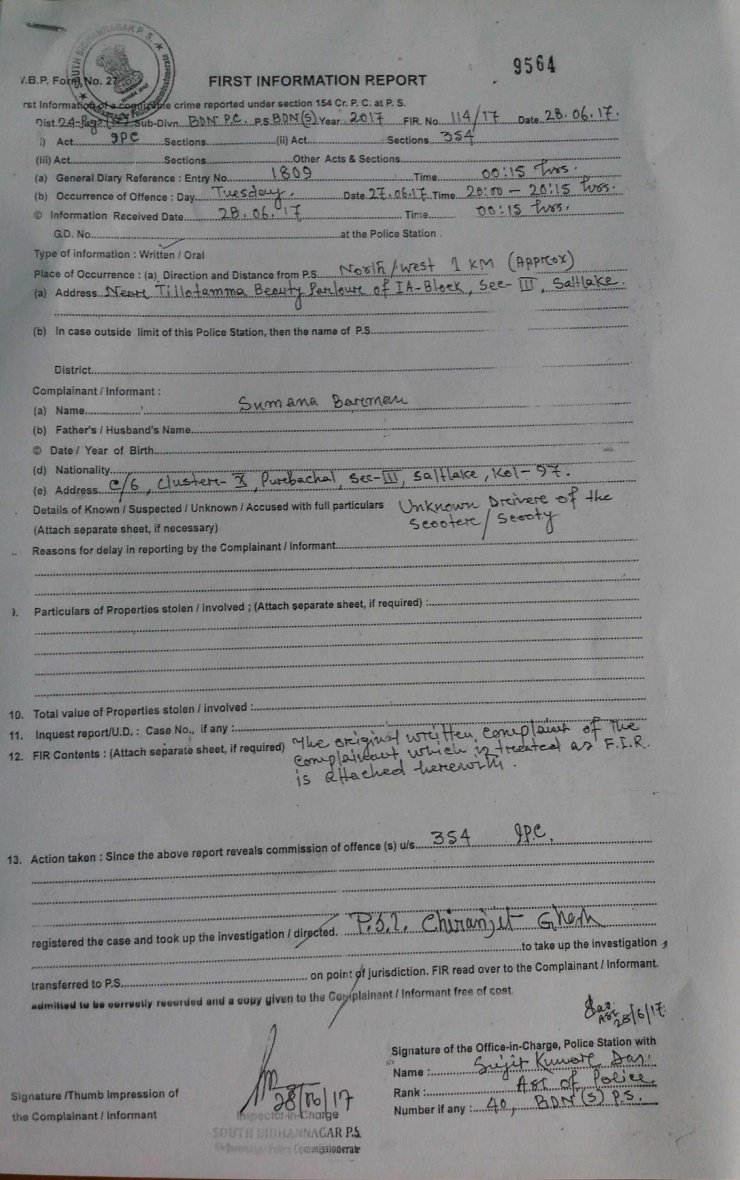 9564
W.B.P. Form No. 27
FIRST INFORMATION REPORT
rst Information of a cognizable crime reported under section 154 Cr. P. C. at P. S.
Dist. 24-Pgs (N) Sub-Divn. BDN P.C. P.S. BDN(S) Year 2017 FIR. No. 114/17 Date 28.06.17.
i) Act IPC Sections (ii) Act Sections 354
(iii) Act Sections Other Acts & Sections
(a) General Diary Reference : Entry No. 1809 Time 00:15 hrs.
(b) Occurrence of Offence : Day Tuesday. Date 27.06.17 Time 20:00 - 20:15 hrs.
© Information Received Date 28.06.17 Time 00:15 hrs.
G.D. No. at the Police Station :
Type of information : Written / Oral
Place of Occurrence : (a) Direction and Distance from P.S. North/West 1 KM (Approx)
(a) Address Neare Tillotamma Beauty Parloure of IA-Block, Sec- III, Saltlake.
(b) In case outside limit of this Police Station, then the name of P.S.
District
Complainant / Informant :
(a) Name Sumana Barman
(b) Father's / Husband's Name
© Date / Year of Birth
(d) Nationality
(e) Address C/6, Clustere- X, Purbachal, Sec-III, Saltlake, Kol-97.
Details of Known / Suspected / Unknown / Accused with full particulars Unknown Drivere of the
(Attach separate sheet, if necessary) Scootere/ Scooty
Reasons for delay in reporting by the Complainant / Informant
9. Particulars of Properties stolen / Involved ; (Attach separate sheet, if required) :
10. Total value of Properties stolen / involved :
11. Inquest report/U.D. : Case No., if any :
12. FIR Contents : (Attach separate sheet, if required) The original written complaint of the
complainant which is treated as F.I.R.
is attached herewith.
13. Action taken : Since the above report reveals commission of offence (s) u/s 354 IPC.
registered the case and took up the investigation / directed. P.S.I. Chiranjit Ghosh
to take up the investigation
transferred to P.S. on point of jurisdiction. FIR read over to the Complainant / Informant.
admitted to be correctly recorded and a copy given to the Complainant / Informant free of cost.
ASI
28/6/17
Signature of the Office-in-Charge, Police Station with
Name : Sujit Kumar Das.
Rank : ASI of Police
Number if any : 40, BDN(S) P.S.
Signature /Thumb Impression of
the Complainant / Informant
28/06/17
Inspector-in-Charge
SOUTH BIDHANNAGAR P.S.
Bidhannagar Police Commissionerate